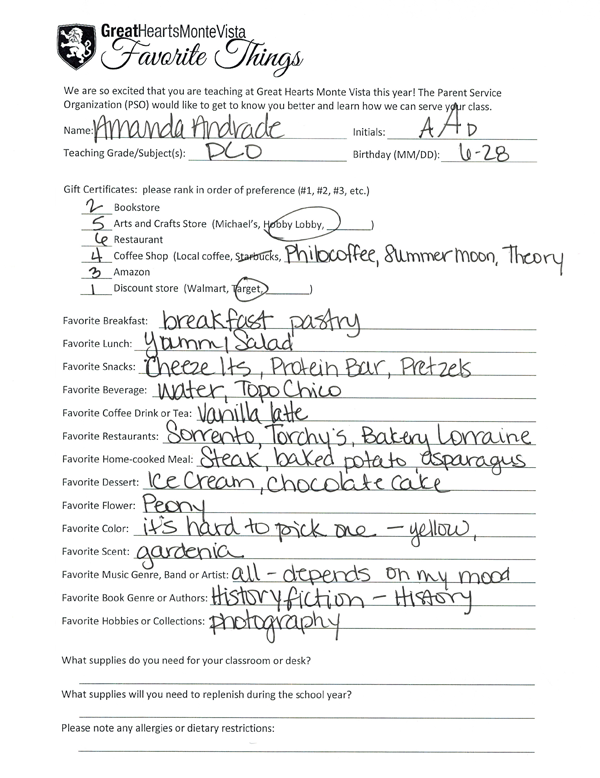 GreatHeartsMonteVista
Favorite Things
We are so excited that you are teaching at Great Hearts Monte Vista this year! The Parent Service
Organization (PSO) would like to get to know you better and learn how we can serve your class.
Name: Amanda Andrade Initials: AAD
Teaching Grade/Subject(s): DCO Birthday (MM/DD): 6-28
Gift Certificates: please rank in order of preference (#1, #2, #3, etc.)
2 Bookstore
5 Arts and Crafts Store (Michael's, Hobby Lobby, ________)
6 Restaurant
4 Coffee Shop (Local coffee, Starbucks, Philocoffee, Summermoon, Theory
3 Amazon
1 Discount store (Walmart, Target, ________)
Favorite Breakfast: breakfast pastry
Favorite Lunch: Yummy Salad
Favorite Snacks: Cheeze Its, Protein Bar, Pretzels
Favorite Beverage: Water, Topo Chico
Favorite Coffee Drink or Tea: Vanilla latte
Favorite Restaurants: Sorrento, Torchy's, Bakery Lorraine
Favorite Home-cooked Meal: Steak, baked potato, asparagus
Favorite Dessert: Ice Cream, chocolate cake
Favorite Flower: Peony
Favorite Color: it's hard to pick one - yellow,
Favorite Scent: gardenia
Favorite Music Genre, Band or Artist: all - depends on my mood
Favorite Book Genre or Authors: History fiction - History
Favorite Hobbies or Collections: photography
What supplies do you need for your classroom or desk?
What supplies will you need to replenish during the school year?
Please note any allergies or dietary restrictions: